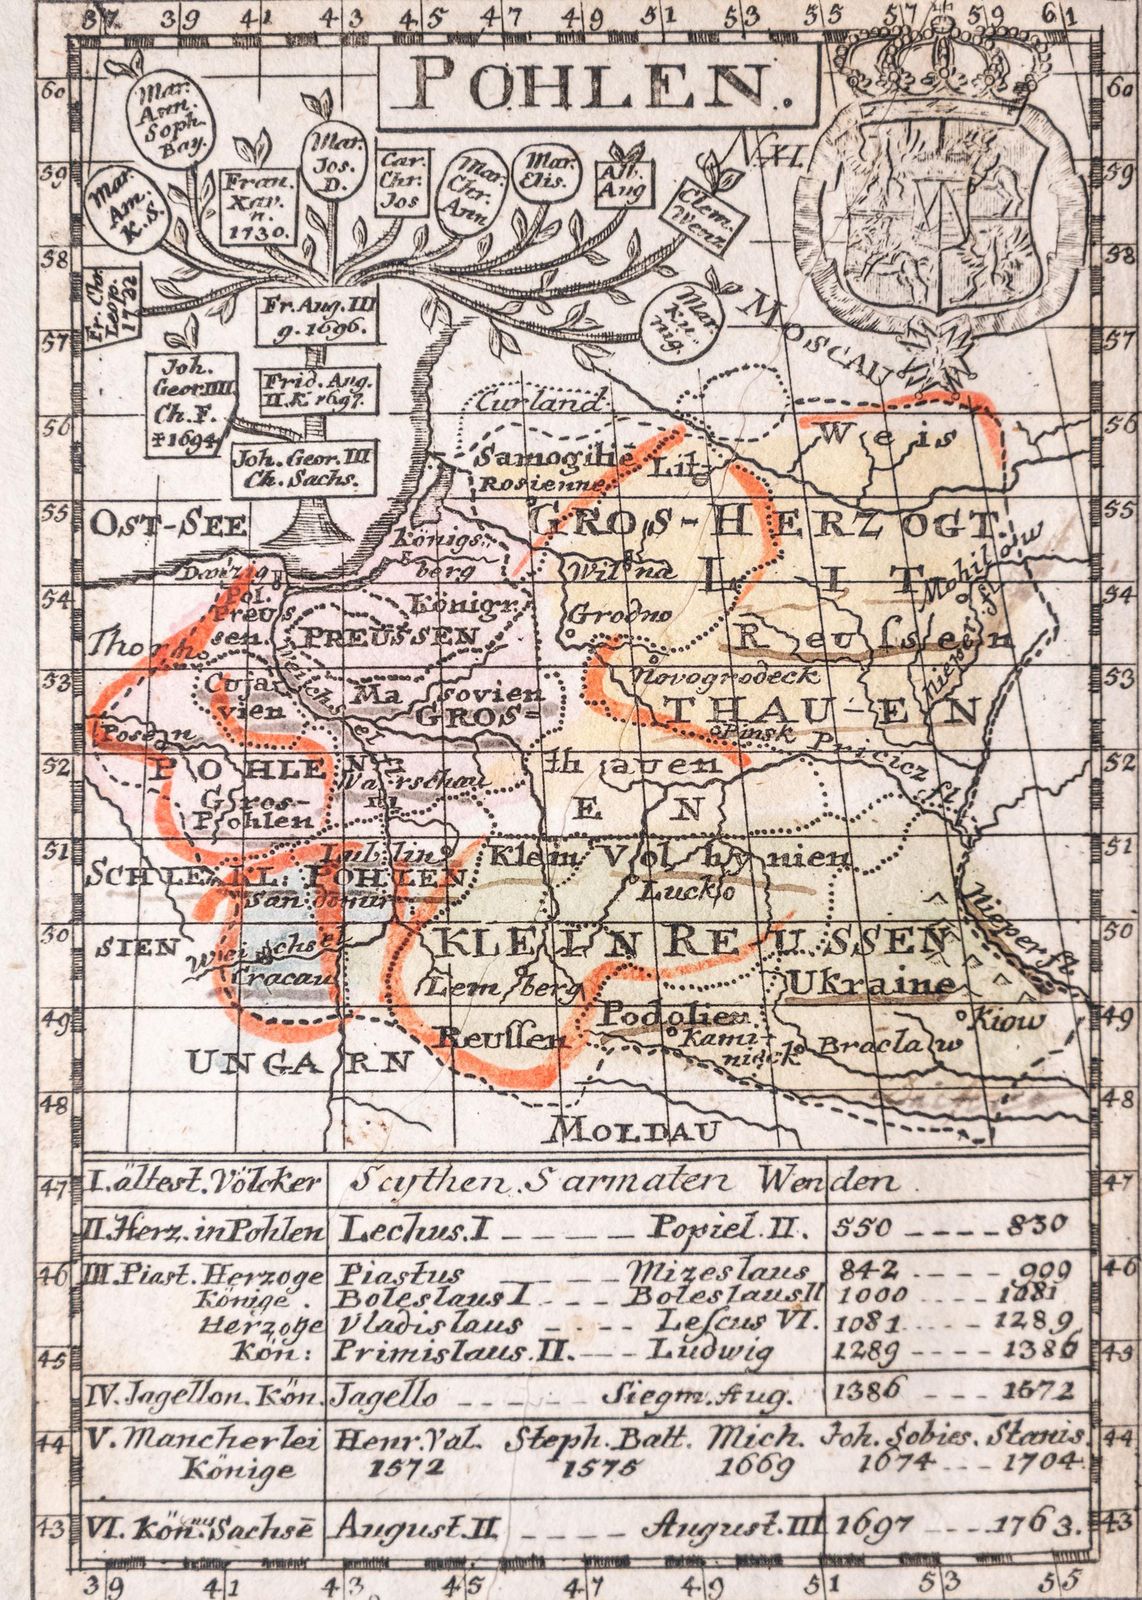 37 39 41 43 45 47 49 51 53 55 57 59 61
POHLEN.
N.XI.
Mar.
Ann.
Soph.
Bay.
Mar.
Am.
K.S.
Fran.
Xav.
n.
1730.
Mar.
Jos.
D.
Car.
Chr.
Jos
Mar.
Chr.
Ann
Mar.
Elis.
Alb.
Aug
Clem.
Wenz.
Fr. Chr.
Leop.
1722
Fr. Aug. III
g. 1696.
Mar.
Ku.
nig.
Joh.
Geor. IIII
Ch. F.
† 1694
Frid. Aug.
II. K. 1697.
Joh. Geor. III
Ch. Sachs.
MOSCAU
Curland
Weis
Samogitie
Rosienne
Lit
OST-SEE
GROS-HERZOGT
Königs-
berg
Wilna
LIT
Mohilow
Danzig
Pol.
Preus
sen.
Königr.
PREUSSEN
Grodno
Reussen
Nieper fl.
Thorn
Weichs
Cuja
vien
Masovien
GROS-
Novogrodeck
THAUEN
Pinsk
Pricicz fl.
Posen
POHLEN
Warschau
thauen
Gros-
Pohlen
EN
SCHLE
Lublin
KL: POHLEN
Klein Volhynien
Sandomir
Lucko
SIEN
Weichsel
KLEIN REUSSEN
Nieper fl.
Cracau
Lemberg
Ukraine
Podolien
Kiow
Reussen
Kami-
nieck
Braclaw
UNGARN
MOLDAU
60 59 58 57 56 55 54 53 52 51 50 49 48 47 46 45 44 43
60 59 58 57 56 55 54 53 52 51 50 49 48 47 46 45 44 43
I. ältest. Völcker Scythen. Sarmaten Wenden.
II. Herz. in Pohlen Lechus. I ---- Popiel. II. 550 ---- 830
III. Piast. Herzoge Piastus ---- Mizeslaus 842 ---- 909
Könige. Boleslaus I ---- Boleslaus II 1000 ---- 1081
Herzoge Vladislaus ---- Lescus VI. 1081 ---- 1289
Kön: Primislaus. II. ---- Ludwig 1289 ---- 1386
IV. Jagellon. Kön. Jagello ---- Siegm. Aug. 1386 ---- 1572
V. Mancherlei Henr. Val. Steph. Batt. Mich. Joh. Sobies. Stanis.
Könige 1572 1575 1669 1674 --- 1704
VI. Kön. aus Sachsē August. II ---- August. III 1697 ---- 1763.
39 41 43 45 47 49 51 53 55